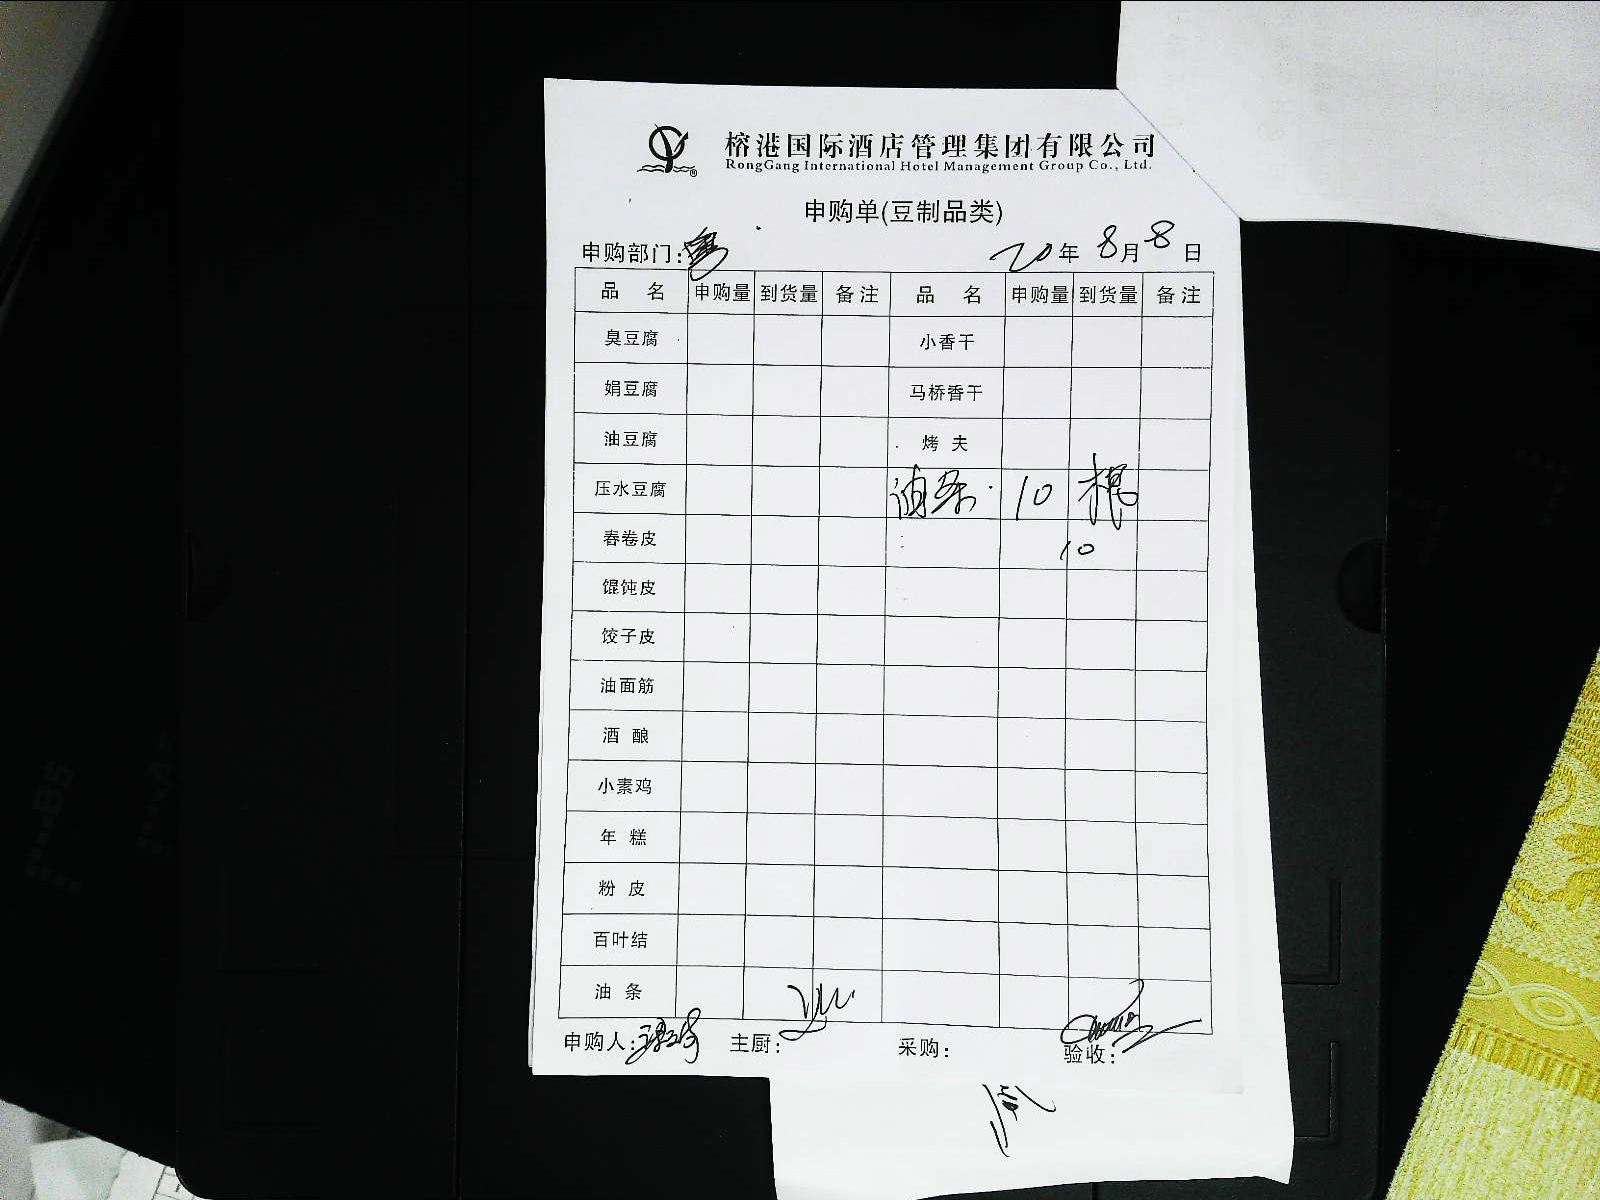 榕港国际酒店管理集团有限公司
RongGang International Hotel Management Group Co., Ltd.
申购单(豆制品类)
申购部门: 20年 8月 8日
品 名 申购量 到货量 备注 品 名 申购量 到货量 备注
臭豆腐 小香干
娟豆腐 马桥香干
油豆腐 烤 夫
压水豆腐 油条 10 根
春卷皮 10
馄饨皮
饺子皮
油面筋
酒 酿
小素鸡
年 糕
粉 皮
百叶结
油 条
申购人: 主厨: 采购: 验收: